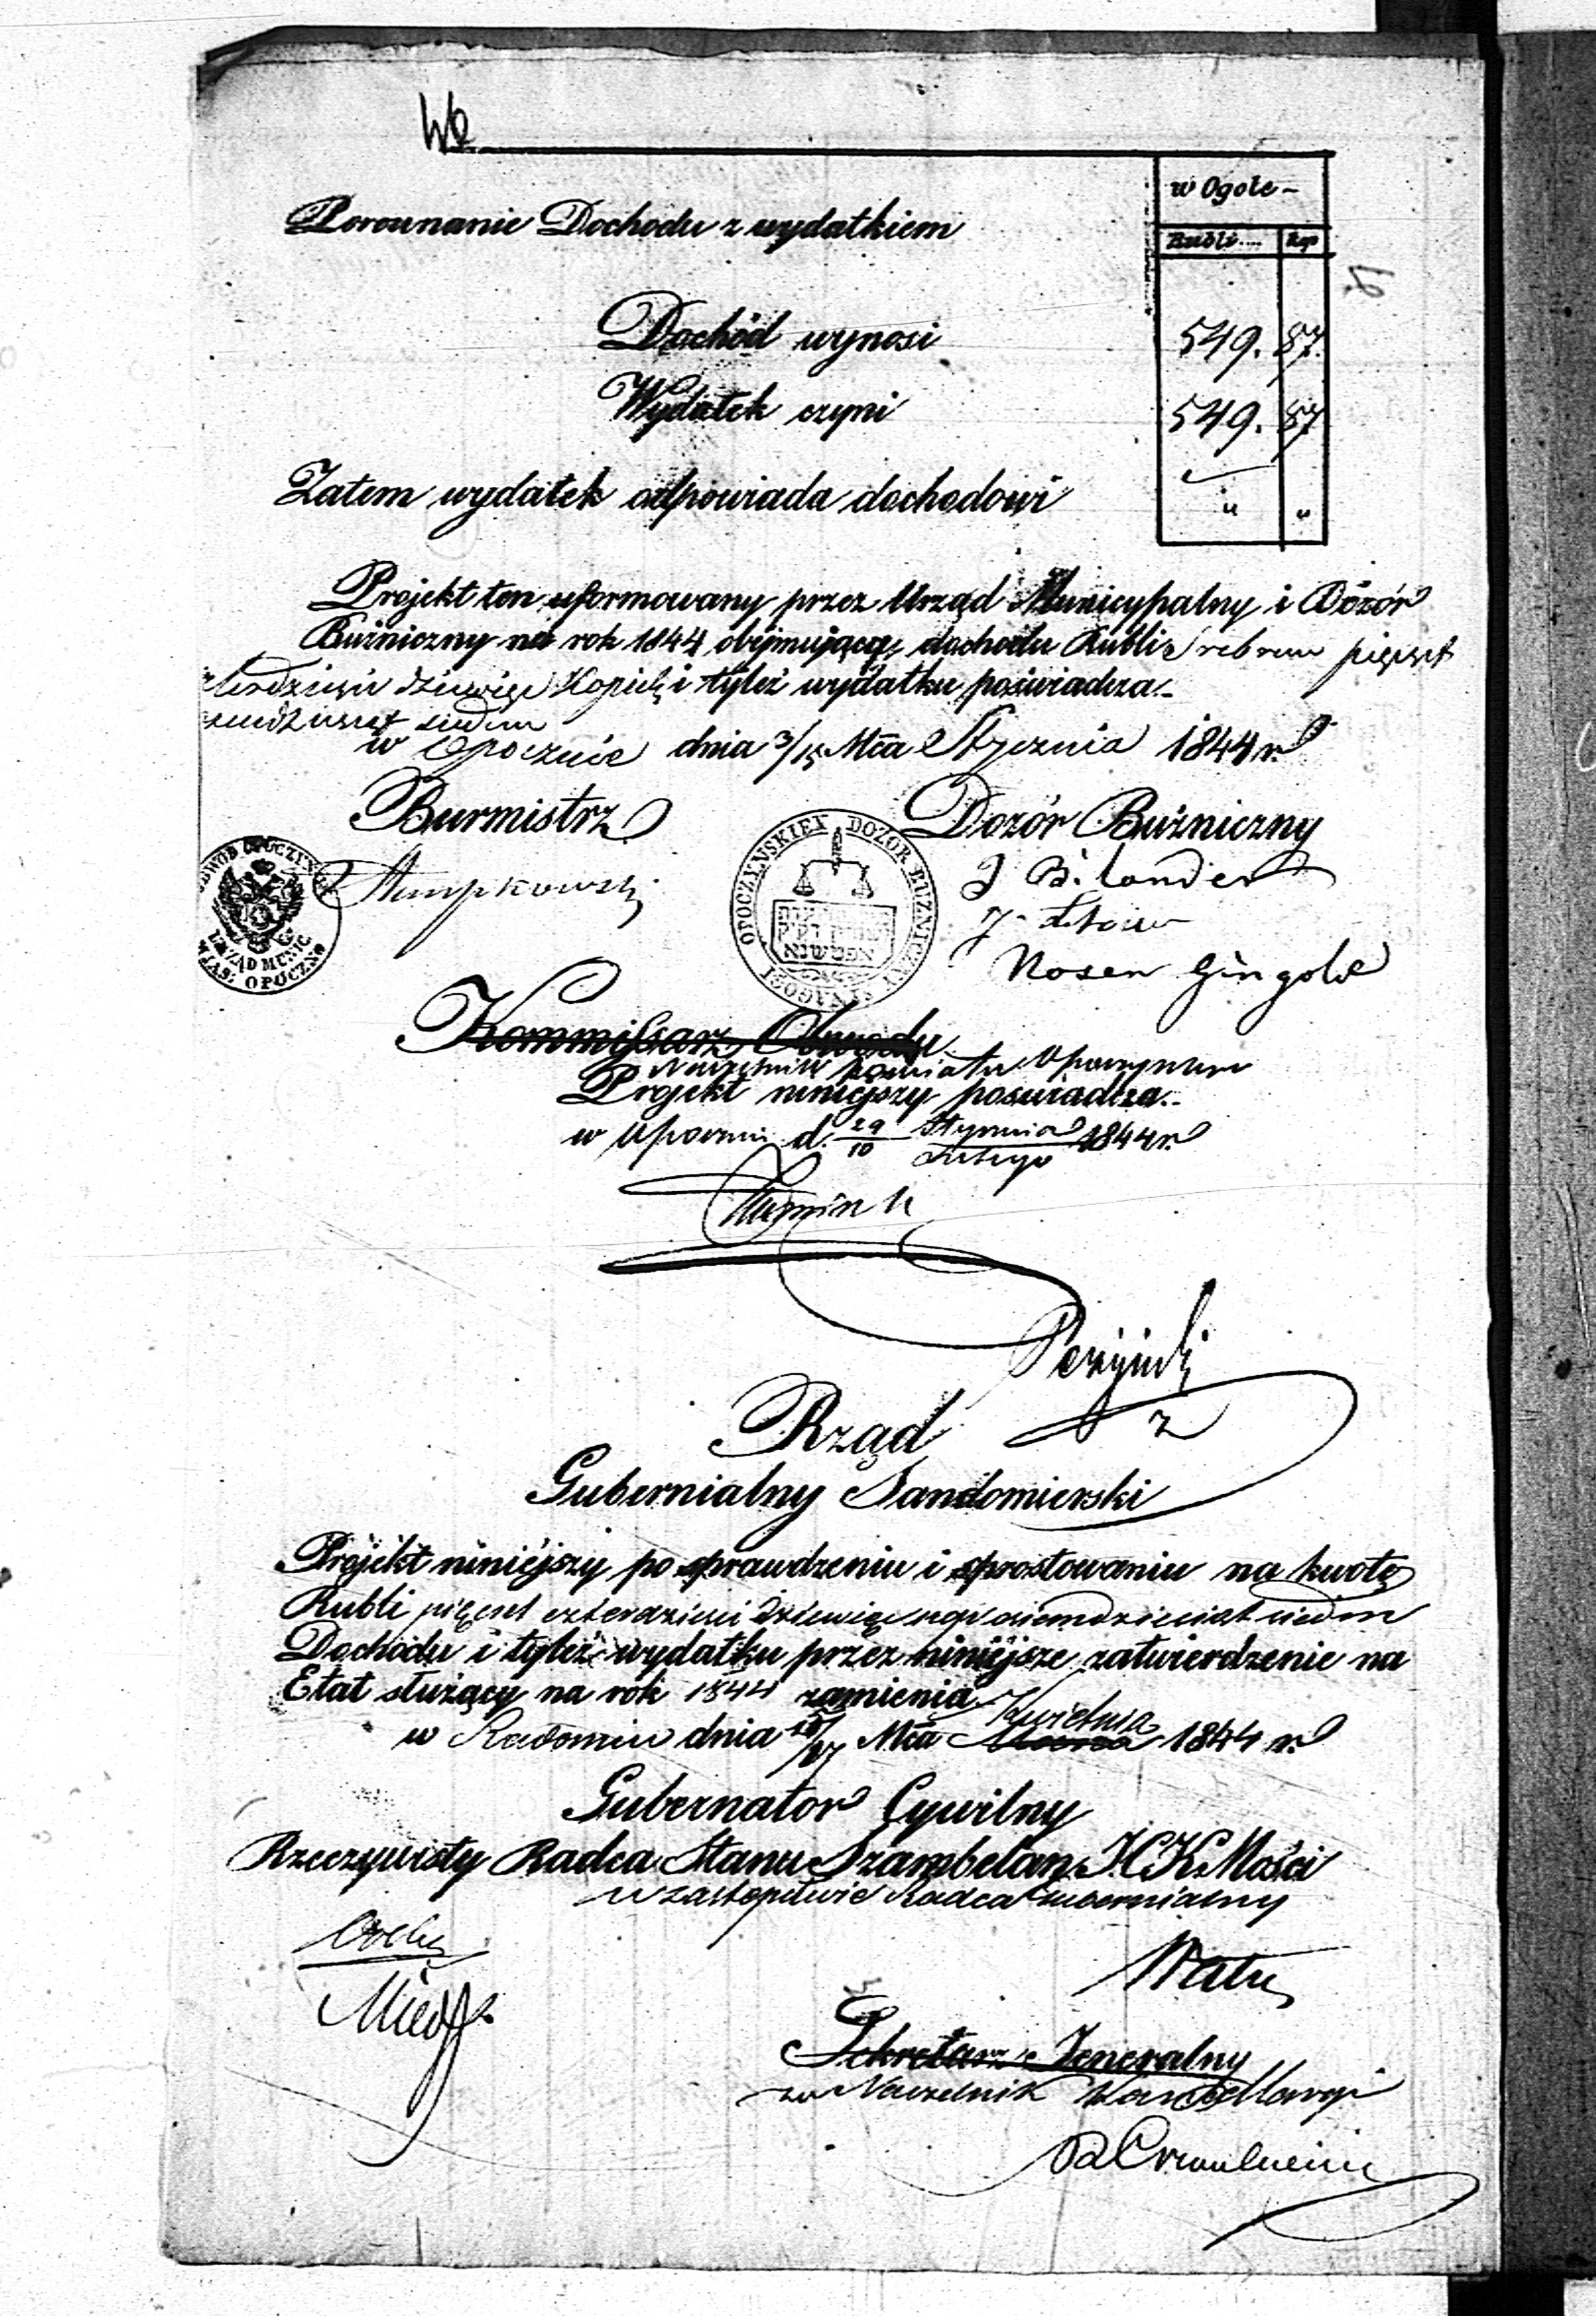 w Ogole -
Porownanie Dochodu z wydatkiem
Rubli .... kop
Dochód wynosi 549. 87.
Wydatek czyni 549. 87
Zatem wydatek odpowiada dochodowi " "
Projekt ten uformowany przez Urząd Municypalny i Dozór
Buźniczny na rok 1844 obejmujący dochodu Rubli srebrem pięćset
czterdzieści dziewięć Kopiek i tyleż wydatku poświadcza.-
siedm
w Opocznie dnia 3/15 Mca Stycznia 1844 r.
Burmistrz Dozór Buźniczny
OBWOD OPOCZYN
URZĄD MUNIC
MIAS. OPOCZNO
OPOCZYNSKIEY DOZOR BUZNICZNY SYNAGOGI
J B. Lander
Nosen Gingold
Kommissarz Obwodu
Naczelnik Powiatu Opoczynski
Projekt niniejszy poswiadcza.-
w Opocznie d. 29/10 Stycznia/Lutego 1844 r.
Rząd
Gubernialny Sandomierski
Projekt niniejszy po sprawdzeniu i sprostowaniu na kwotę
Rubli pięcset czterdzieści dziewięć kop osiemdziesiat siedm
Dochodu i tyleż wydatku przez niniejsze zatwierdzenie na
Etat służący na rok 1844 zamienia
Kwietnia
w Radomiu dnia Mca 1844 r.
Gubernator Cywilny
Rzeczywisty Radca Stanu Szambelan J.C.K. Mości
w zastępstwie Radca Gubernialny
Sekretarz Jeneralny
Naczelnik Kancellaryi